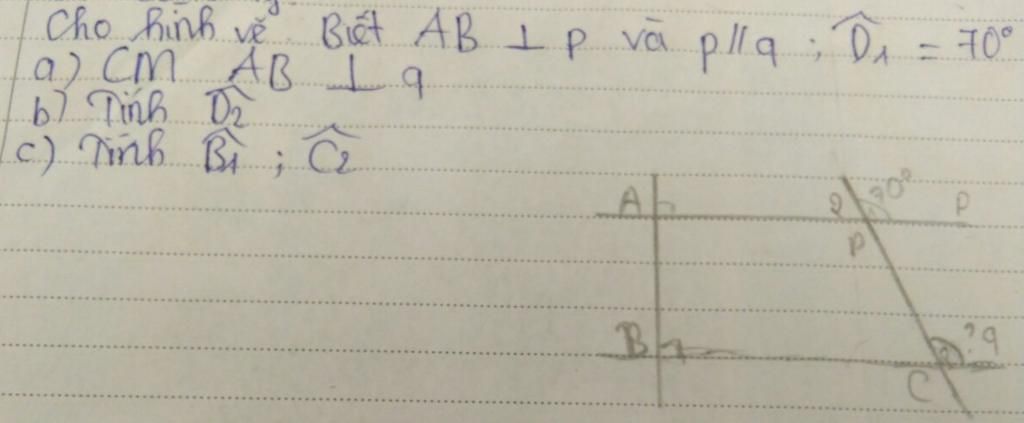 Cho hình vẽ. Biết AB ⊥ p và p // q ; D̂1 = 70°
a) CM AB ⊥ q
b) Tính D̂2
c) Tính B̂1 ; Ĉ2
A 2 70° p
D
B 1 2 ? q
C